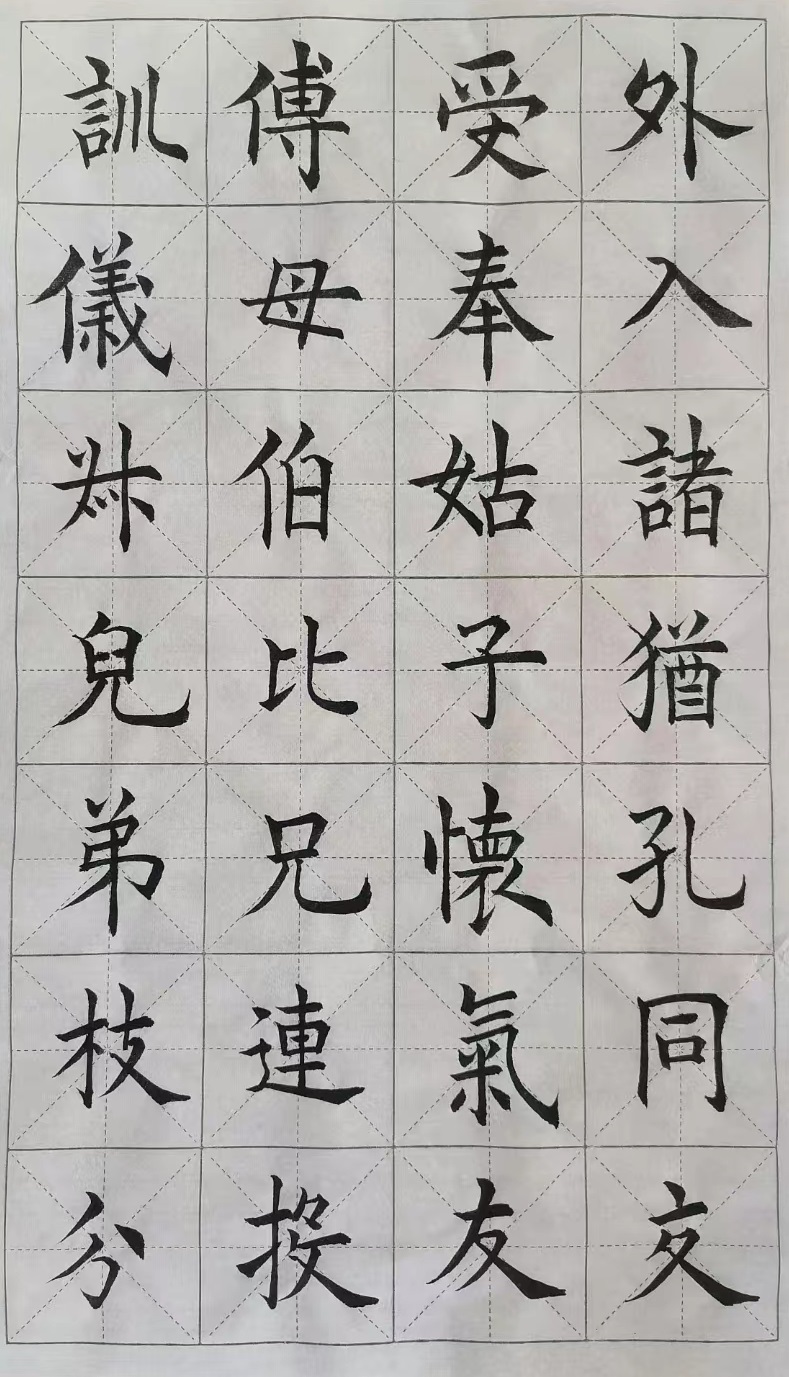 外受傅訓
入奉母儀
諸姑伯叔
猶子比兒
孔懐兄弟
同氣連枝
交友投分